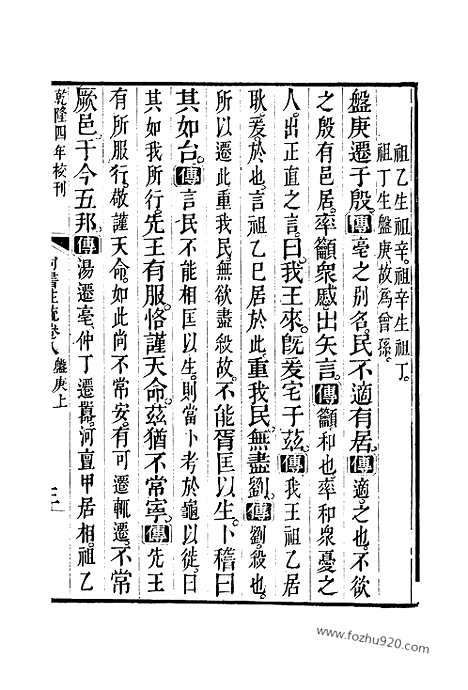 祖乙生祖辛。祖辛生祖丁。
祖丁生盤庚故爲曾孫。
盤庚遷于殷。傳亳之別名。民不適有居。傳適。之也。不欲
之殷有邑居。率籲衆慼出矢言。傳籲和也率和衆憂之
人。出正直之言。曰。我王來。旣爰宅于茲。傳我王祖乙居
耿。爰。於也。言祖乙已居於此。重我民。無盡劉。傳劉。殺也。
所以遷此重我民。無欲盡殺故。不能胥匡以生。卜稽曰
其如台。傳言民不能相匡以生。則當卜考於龜以徙。曰
其如我所行。先王有服。恪謹天命。茲猶不常寧。傳先王
有所服行。敬謹天命。如此尚不常安。有可遷輒遷。不常
厥邑。于今五邦。傳湯遷亳。仲丁遷囂。河亶甲居相。祖乙
乾隆四年校刊
盤庚上
www.fozhu920.com